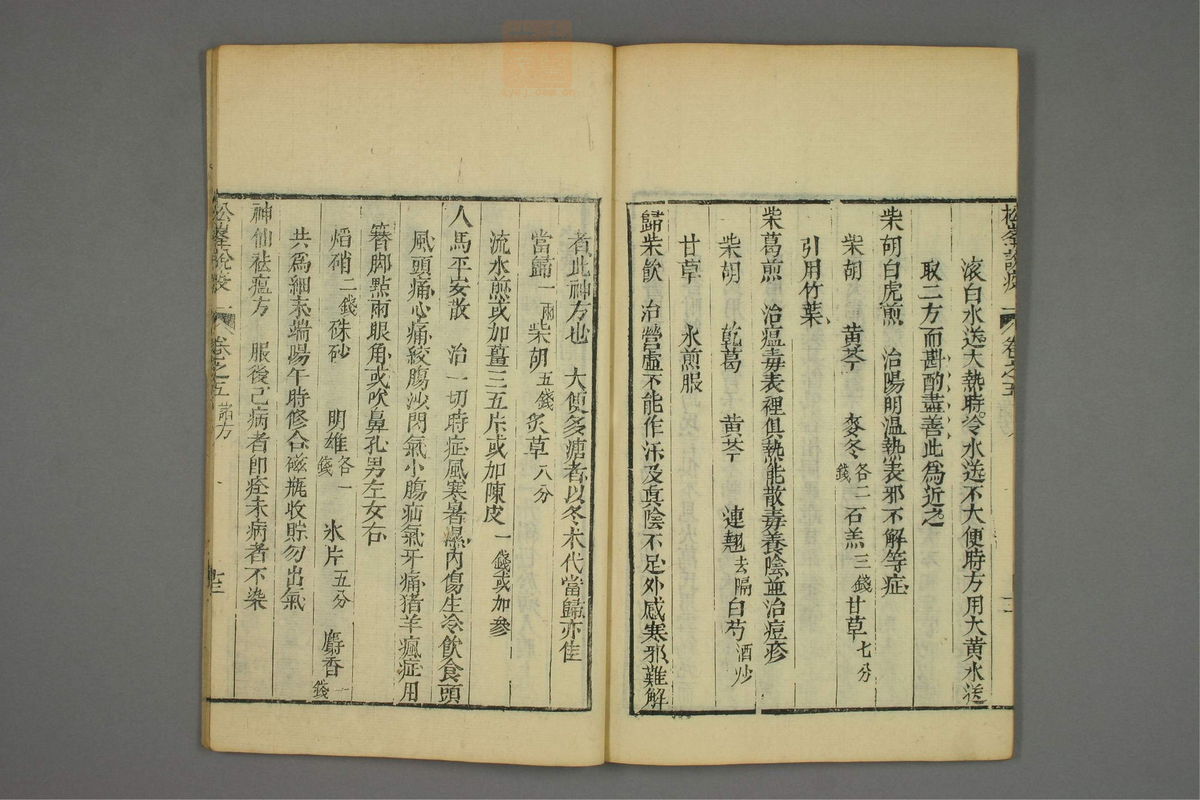 滚白水送大熱時冷水送不大便時方用大黃水送
取二方而斟酌盡善此為近之
柴胡白虎煎 治陽明温熱表邪不解等症
柴胡 黃芩 麥冬各二錢 石羔三錢 甘草七分
引用竹葉
柴葛煎 治瘟毒表裡俱熱能散毒養陰並治痘疹
柴胡 乾葛 黃芩 連翹去隔 白芍酒炒
甘草 水煎服
歸柴飲 治營虛不能作汗及真陰不足外感寒邪難解
者此神方也 大便多溏者以冬朮代當歸亦佳
當歸一兩 柴胡五錢 炙草八分
流水煎或加薑三五片或加陳皮一錢或加參
人馬平安散 治一切時症風寒暑濕內傷生冷飲食頭
風頭痛心痛絞腸沙閃氣小腸疝氣牙痛猪羊瘋症用
簪脚點兩眼角或吹鼻孔男左女右
焰硝二錢 硃砂 明雄各一錢 氷片五分 麝香一錢
共為細末端陽午時修合磁瓶收貯勿出氣
神仙祛瘟方 服後已病者即痊未病者不染
松峯說疫 卷之五 諸方